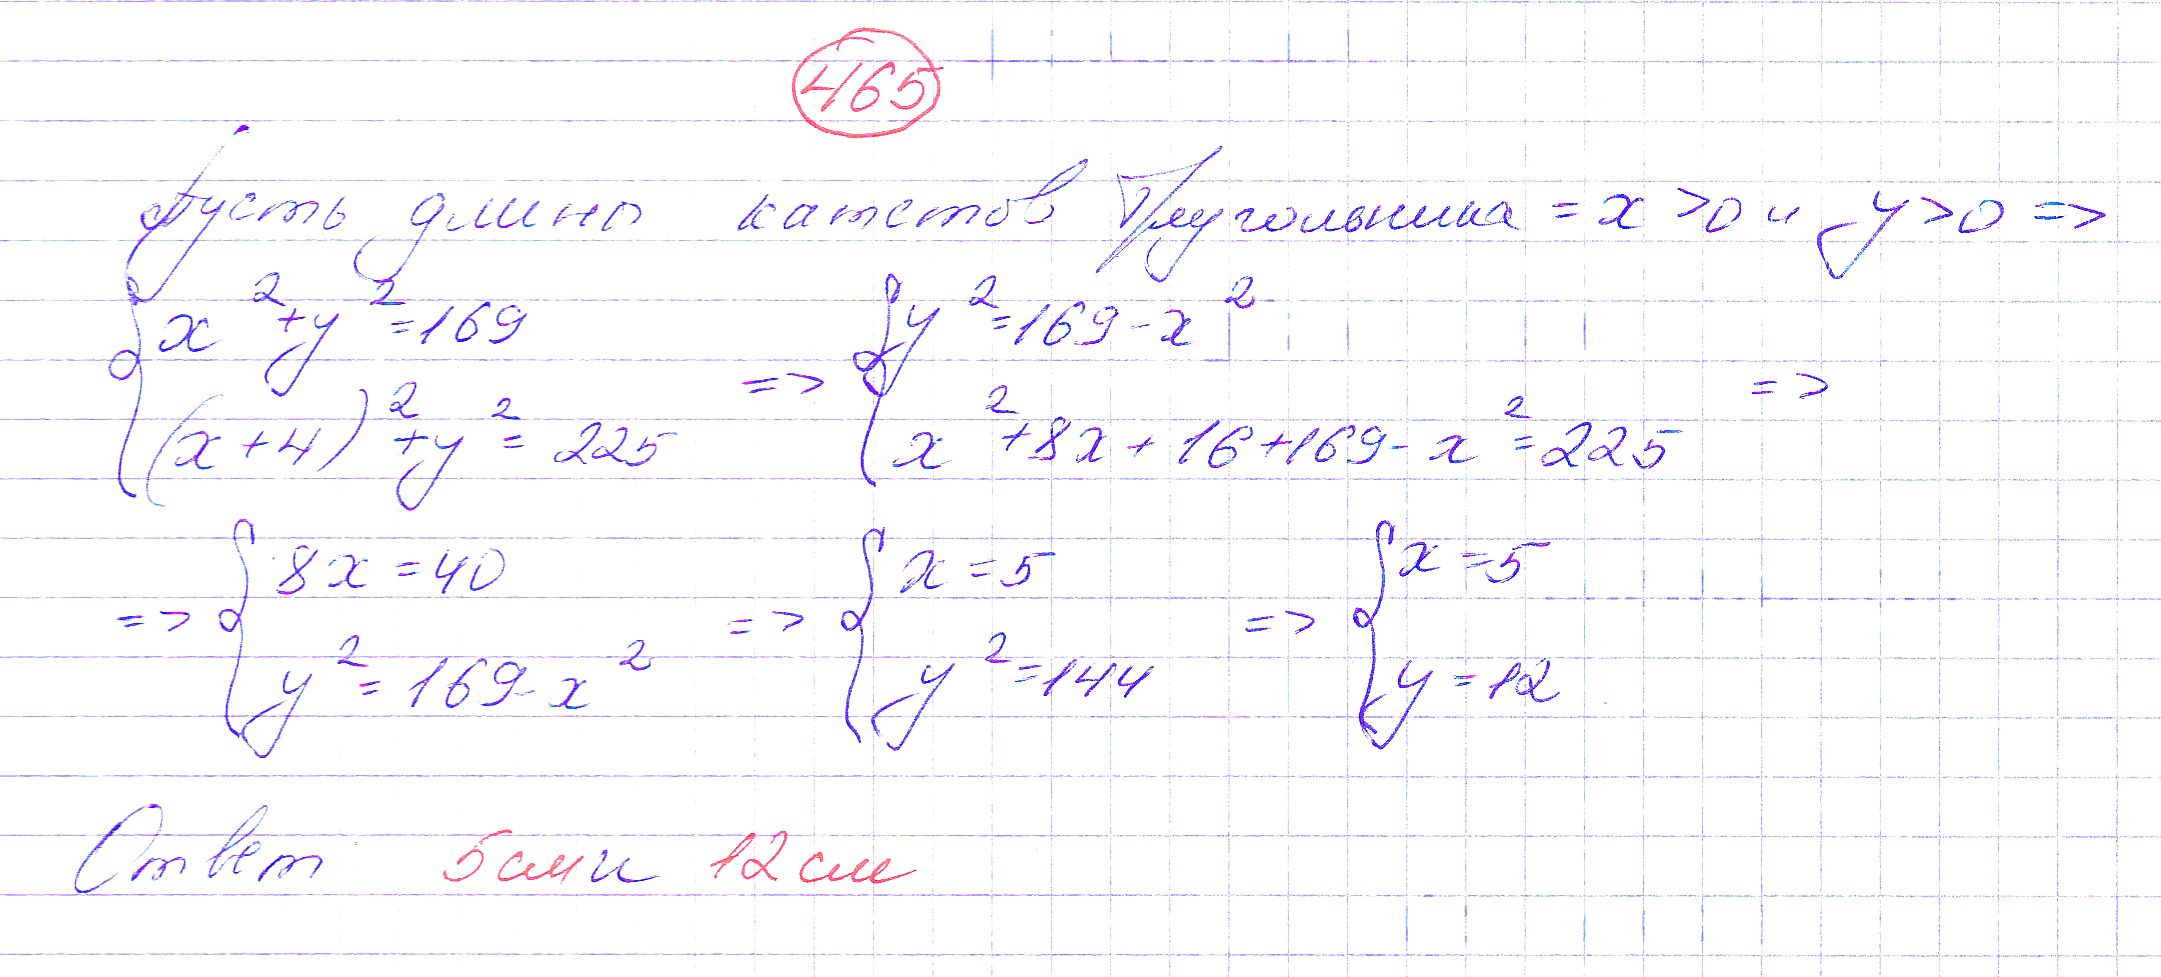 465
Пусть длины катетов треугольника = x > 0 и y > 0 =>
{ x² + y² = 169 => { y² = 169 - x²
{ (x + 4)² + y² = 225 { x² + 8x + 16 + 169 - x² = 225 =>
=> { 8x = 40 => { x = 5 => { x = 5
{ y² = 169 - x² { y² = 144 { y = 12
Ответ 5 см и 12 см